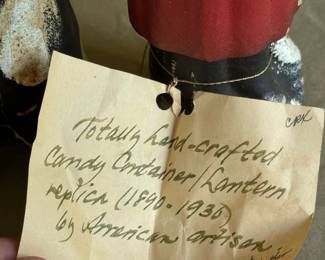 CRK
Totally hand-crafted
Candy Container/Lantern
replica (1890-1930)
by American artisan